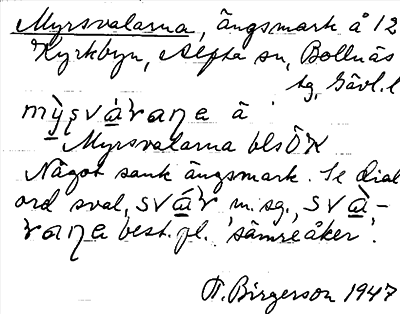 Myrsvalarna, ängsmark å 12
Kyrkbyn, Alfta sn, Bollnäs
tg, Gävl. l
mỳṣvàraṇa ä
Myrsvalarna bls ÖK
Något sank ängsmark. Se dial
ord sval, svár m. sg., svà-
raṇa best. pl. 'sämre åker'.
Birgerson 1947